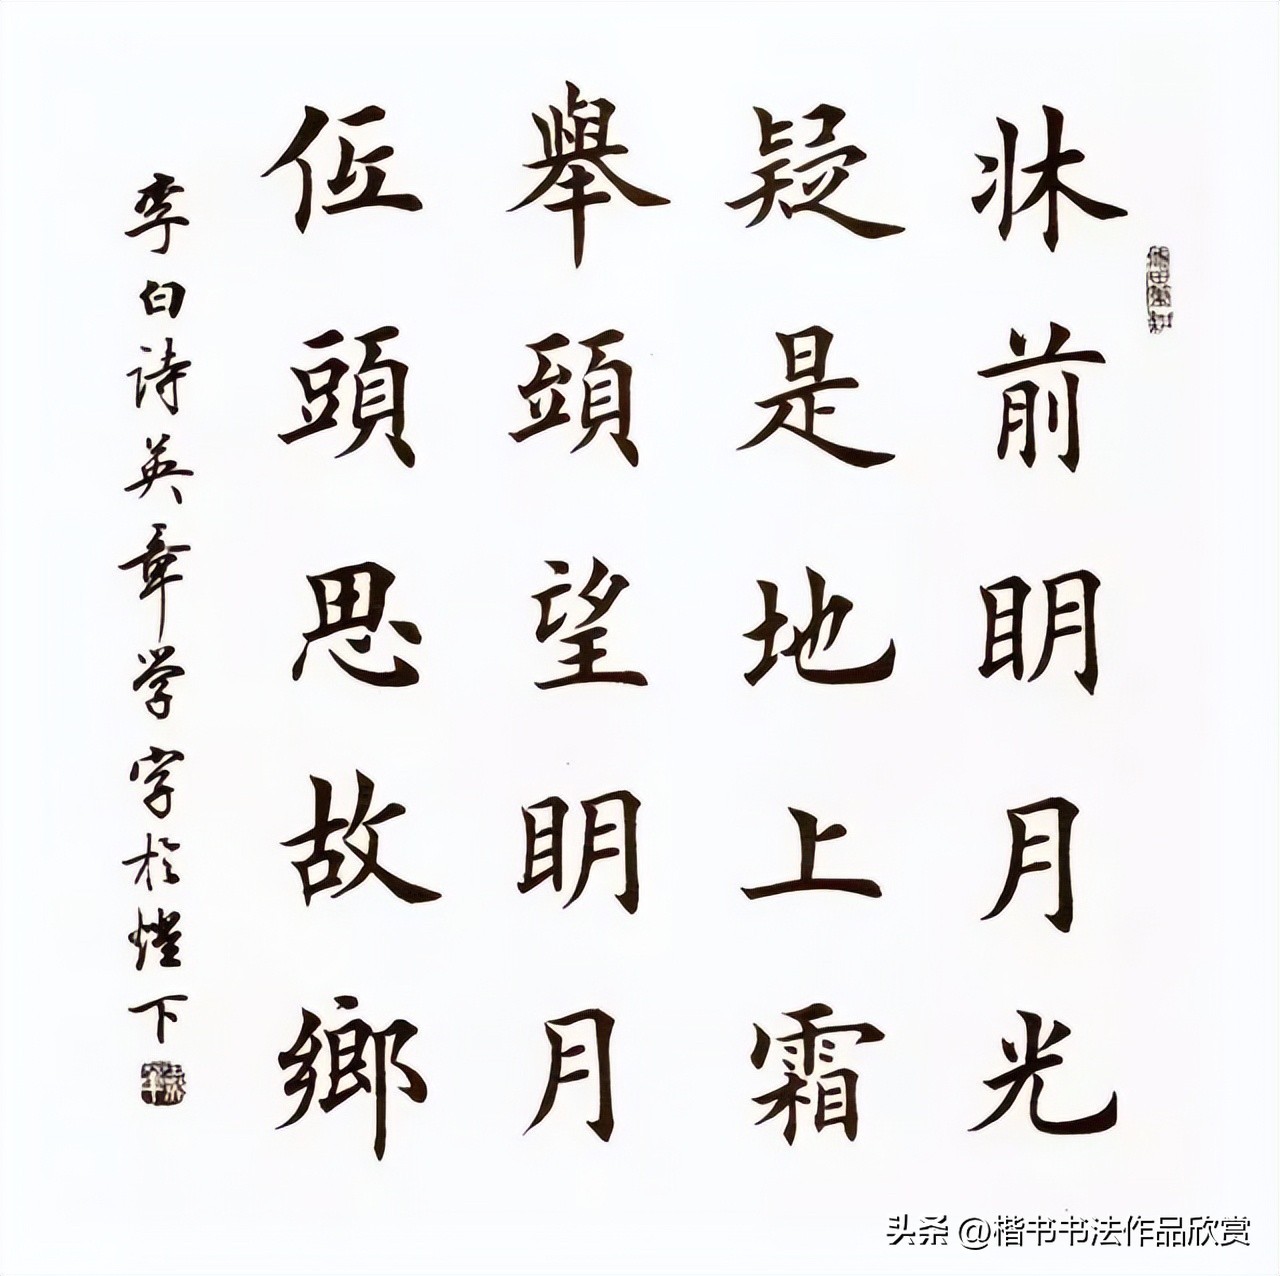 牀前明月光
疑是地上霜
舉頭望明月
低頭思故鄉
李白詩英章学字於燈下
头条 @楷书书法作品欣赏